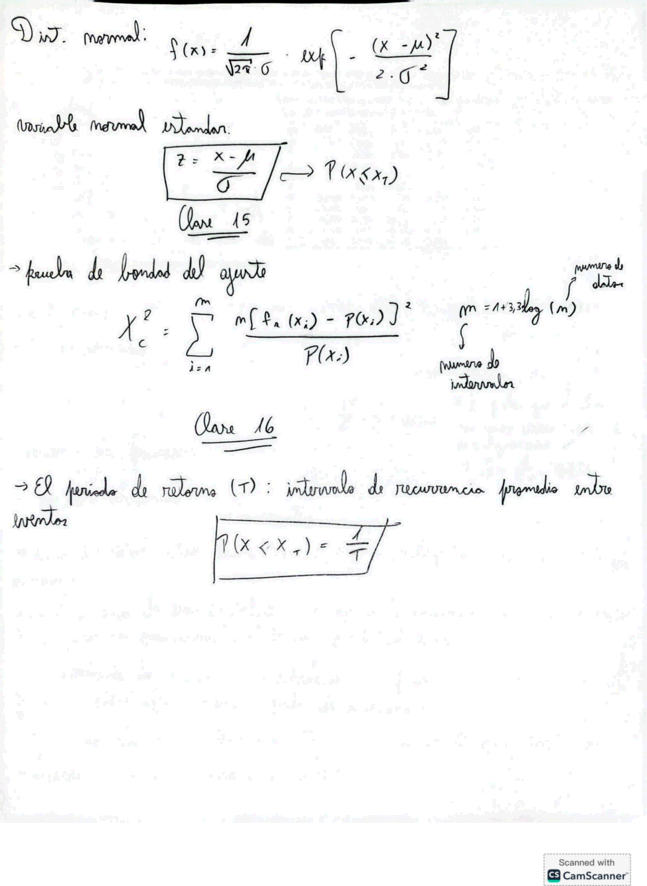 Dist. normal: f(x) = 1 / √2π · σ · exp[ - (x - μ)² / 2 · σ² ]
variable normal estandar.
z = x - μ / σ → P(x ≤ x_T)
Clase 15
→ prueba de bondad del ajuste
numero de datos
X_c² = Σ_{i=1}^{m} n[f_s(x_i) - P(x_i)]² / P(x_i) m = 1+3,3 log (n)
numero de intervalos
Clase 16
→ El periodo de retorno (T) : intervalo de recurrencia promedio entre
eventos
P(x < x_T) = 1/T
Scanned with
CS CamScanner